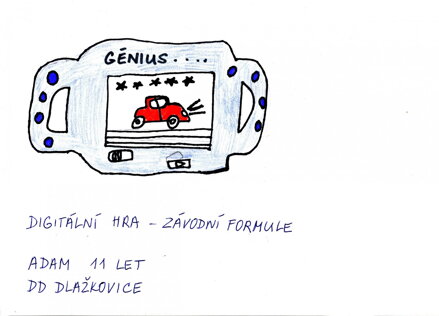 GÉNIUS....
DIGITÁLNÍ HRA - ZÁVODNÍ FORMULE
ADAM 11 LET
DD DLAŽKOVICE